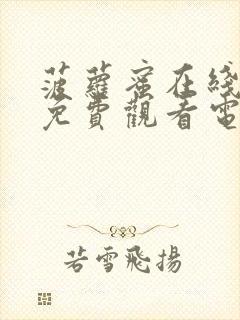 菠蘿蜜在綫
免費觀看電
若雪飛揚